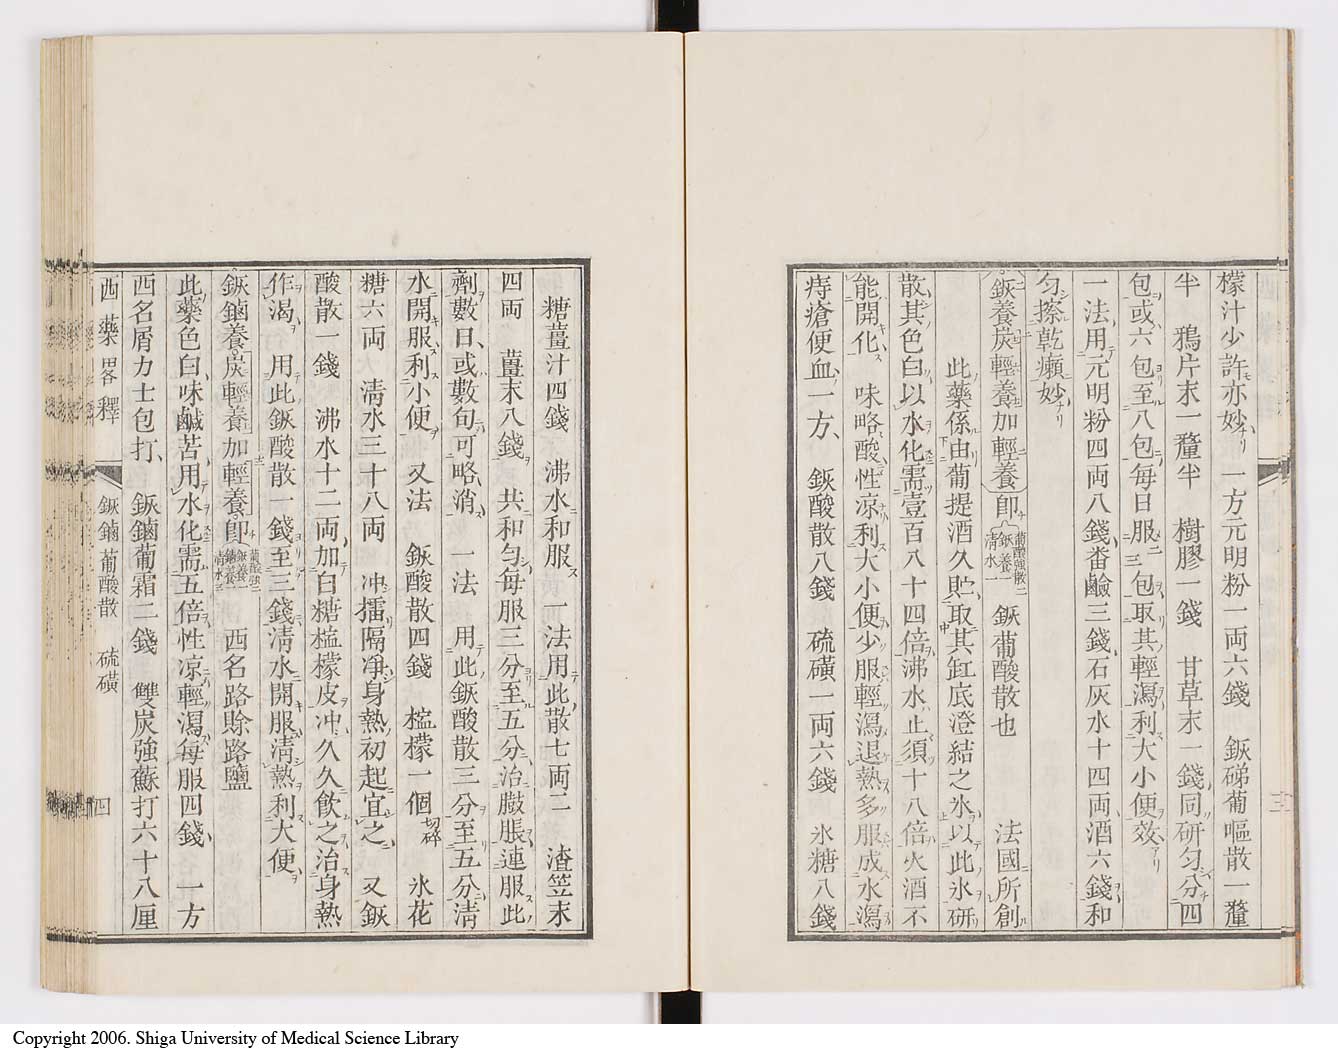 檬汁少許亦妙 一方元明粉一両六錢 鋠碲葡嘔散一釐
半 鴉片末一釐半 樹膠一錢 甘草末一錢同研匀分四
包或六包至八包每日服三包取其輕瀉利大小便效
一法用元明粉四両八錢畨鹼三錢石灰水十四両酒六錢和
匀搽乾癩妙
鋠養炭輕養加輕養卽 葡酸強散二 鋠養一 清水一 鋠葡酸散也 法國所創
此藥係由葡提酒久貯取其缸底澄結之氷以此氷研
散其色白以水化需壹百八十四倍沸水止須十八倍火酒不
能開化 味略酸性凉利大小便少服輕瀉退熱多服成水瀉
痔瘡便血一方 鋠酸散八錢 硫磺一両六錢 氷糖八錢
糖薑汁四錢 沸水和服 一法用此散七両二 渣笠末
四両 薑末八錢 共和匀每服三分至五分治臌脹連服此
劑數日或數旬可略消 一法 用此鋠酸散三分至五分清
水開服利小便 又法 鋠酸散四錢 檻檬一個切碎 氷花
糖六両 清水三十八両 冲擂隔淨身熱初起宜之 又鋠
酸散一錢 沸水十二両加白糖檻檬皮冲久久飲之治身熱
作渴 用此鋠酸散一錢至三錢清水開服清熱利大便
鋠鏀養炭輕養加輕養卽 葡酸強二 鋠養一 鏀養一 清水三 西名路賒路鹽
此藥色白味鹹苦用水化需五倍性凉輕瀉每服四錢 一方
西名屑力士包打 鋠鏀葡霜二錢 雙炭強蘇打六十八厘
西藥畧釋 鋠鏀葡酸散 硫磺 四
Copyright 2006. Shiga University of Medical Science Library